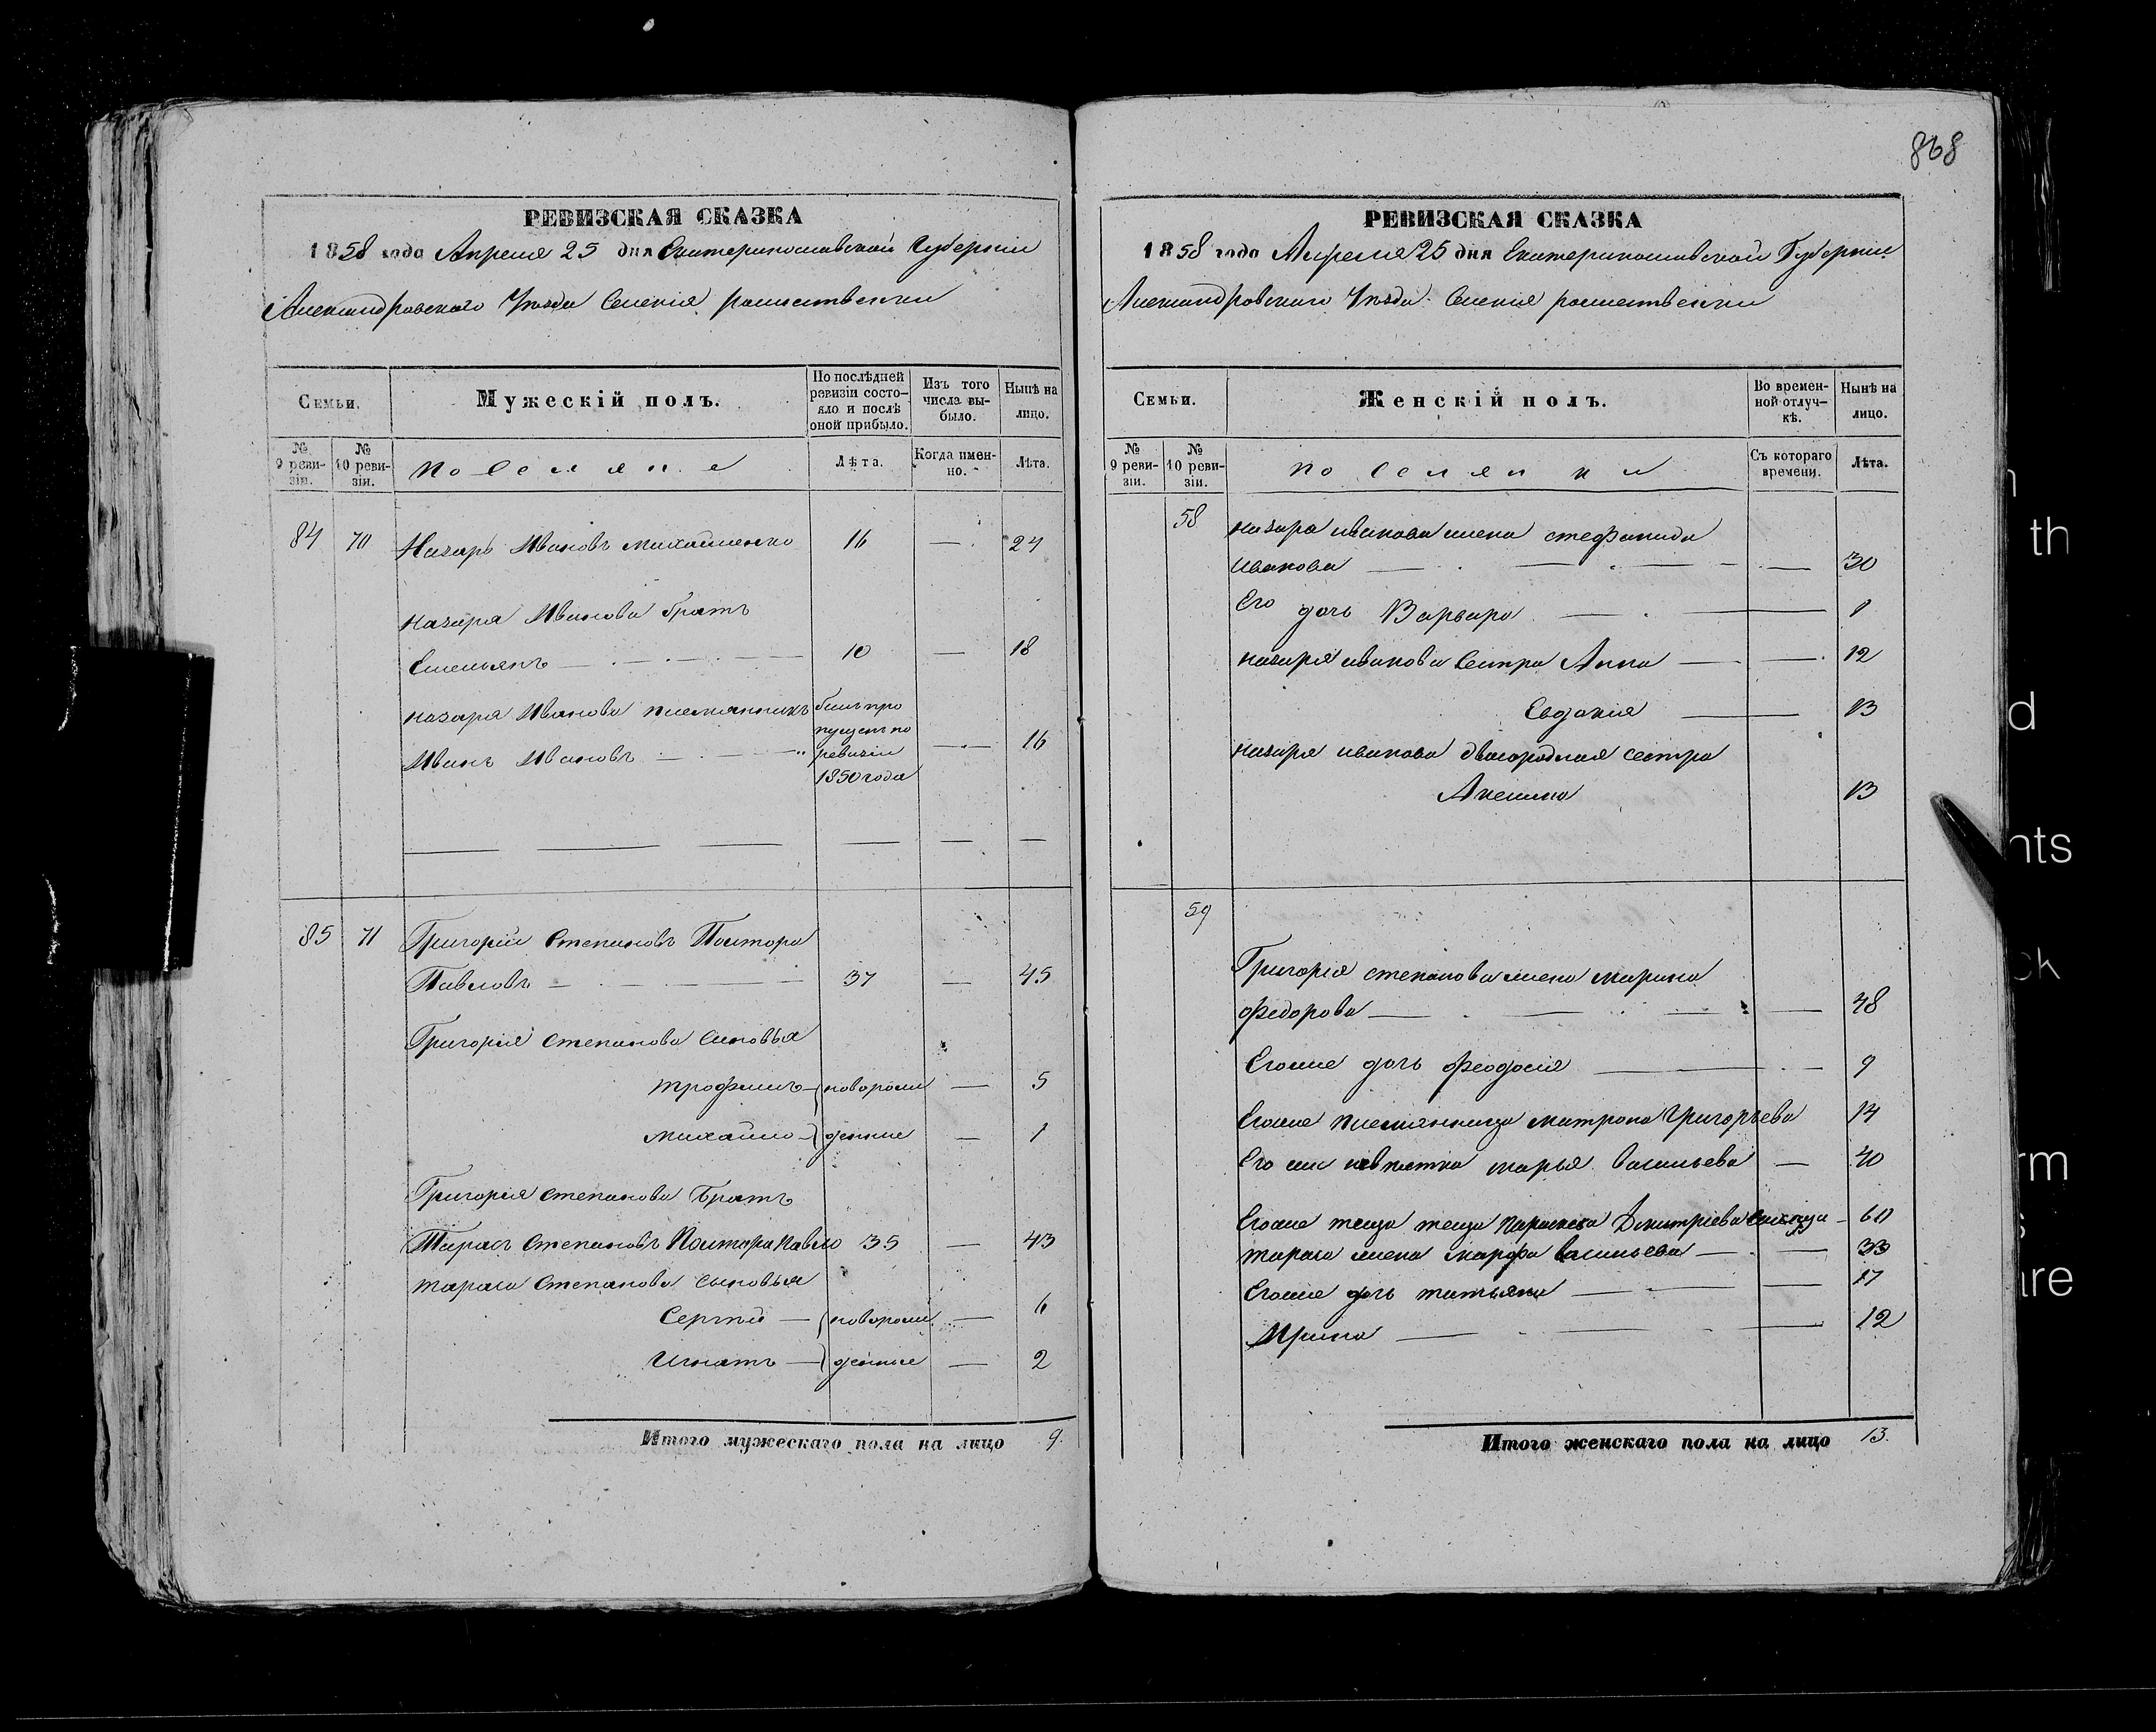 868
РЕВИЗСКАЯ СКАЗКА
1858 года Апреля 25 дня Екатеринославской Губерніи
Александровского Уѣзда Селенія рождественки
Семьи.
Мужескій полъ.
По послѣдней ревизіи состо-
яло и послѣ
оной прибыло.
Изъ того
числа вы-
было.
Нынѣ на
лицо.
№ 9 реви-
зіи.
№ 10 реви-
зіи.
Поселяне
Лѣта.
Когда имен-
но.
Лѣта.
84 70 Назаръ Ивановъ михайленко 16 — 24
назара Иванова братъ
Емельянъ — 10 — 18
назара Иванова племянникъ былъ про
пущенъ по
Иванъ Ивановъ — ревизіи — 16
1850 года
85 71 Григорій Степановъ Полтора
Павловъ — 37 — 45
Григорія Степанова сыновья
трофимъ — новорож — 5
михайло — денные — 1
Григорія Степанова Братъ
Тарасъ Степановъ Полтора Павло 35 — 43
тараса Степанова сыновья
Сергѣй — новорож — 6
Игнатъ — денные — 2
Итого мужескаго пола на лицо 9.
РЕВИЗСКАЯ СКАЗКА
1858 года Апреля 25 дня Екатеринославской Губерніи
Александровского Уѣзда Селенія рождественки
Семьи.
Женскій полъ.
Во времен-
ной отлуч-
кѣ.
Нынѣ на
лицо.
№ 9 реви-
зіи.
№ 10 реви-
зіи.
поселянки
Съ котораго
времени.
Лѣта.
58 назара иванова жена стефанида
Иванова — 30
Его дочь Варвара — 1
назара иванова Сестра Анна — 12
Евдокия — 13
назара иванова двоюродная сестра
Акелина 13
59
Григорія степанова жена марина
федорова — 48
Егоже дочь феодосія — 9
Егоже племянница матрона Григорьева 14
Его же невѣстка марья Васильева — 40
Егоже теща теща Параскева Дмитріева — 60
тараса жена марфа васильева — 33
Егоже дочь татьяна — 17
Ирина — 12
Итого женскаго пола на лицо 13.
th
d
nts
ck
rm
are